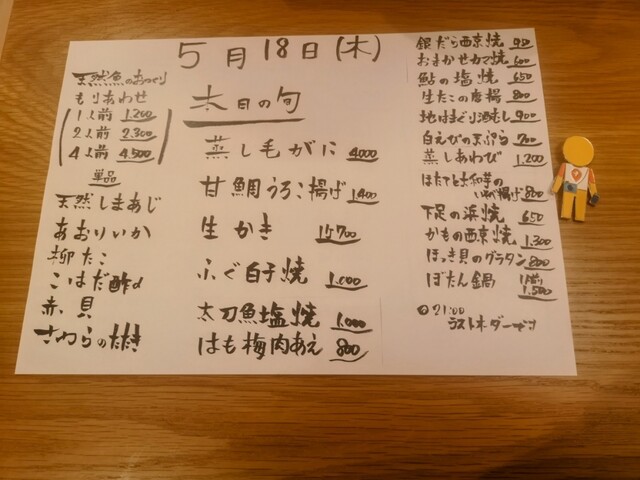 5月18日(木)
天然魚のおつくり
もりあわせ
1人前 1.200
2人前 2.300
4人前 4.500
単品
天然しまあじ
あおりいか
柳たこ
こはだ酢〆
赤貝
さわらのたたき
本日の旬
蒸し毛がに 4000
甘鯛うろこ揚げ 1400
生かき 1ヶ700
ふぐ白子焼 1.000
太刀魚塩焼 1.000
はも梅肉あえ 800
銀だら西京焼 950
おまかせカマ焼 600
鮎の塩焼 650
生たこの唐揚 800
地はまぐり酒むし 900
白えびの天ぷら 700
蒸しあわび 1.200
ほたてと大和芋の
いそべ揚げ 800
下足の浜焼 650
かもの西京焼 1.300
ほっき貝のグラタン 800
ぼたん鍋 1人前
1.500
◎21:00
ラストオーダーです